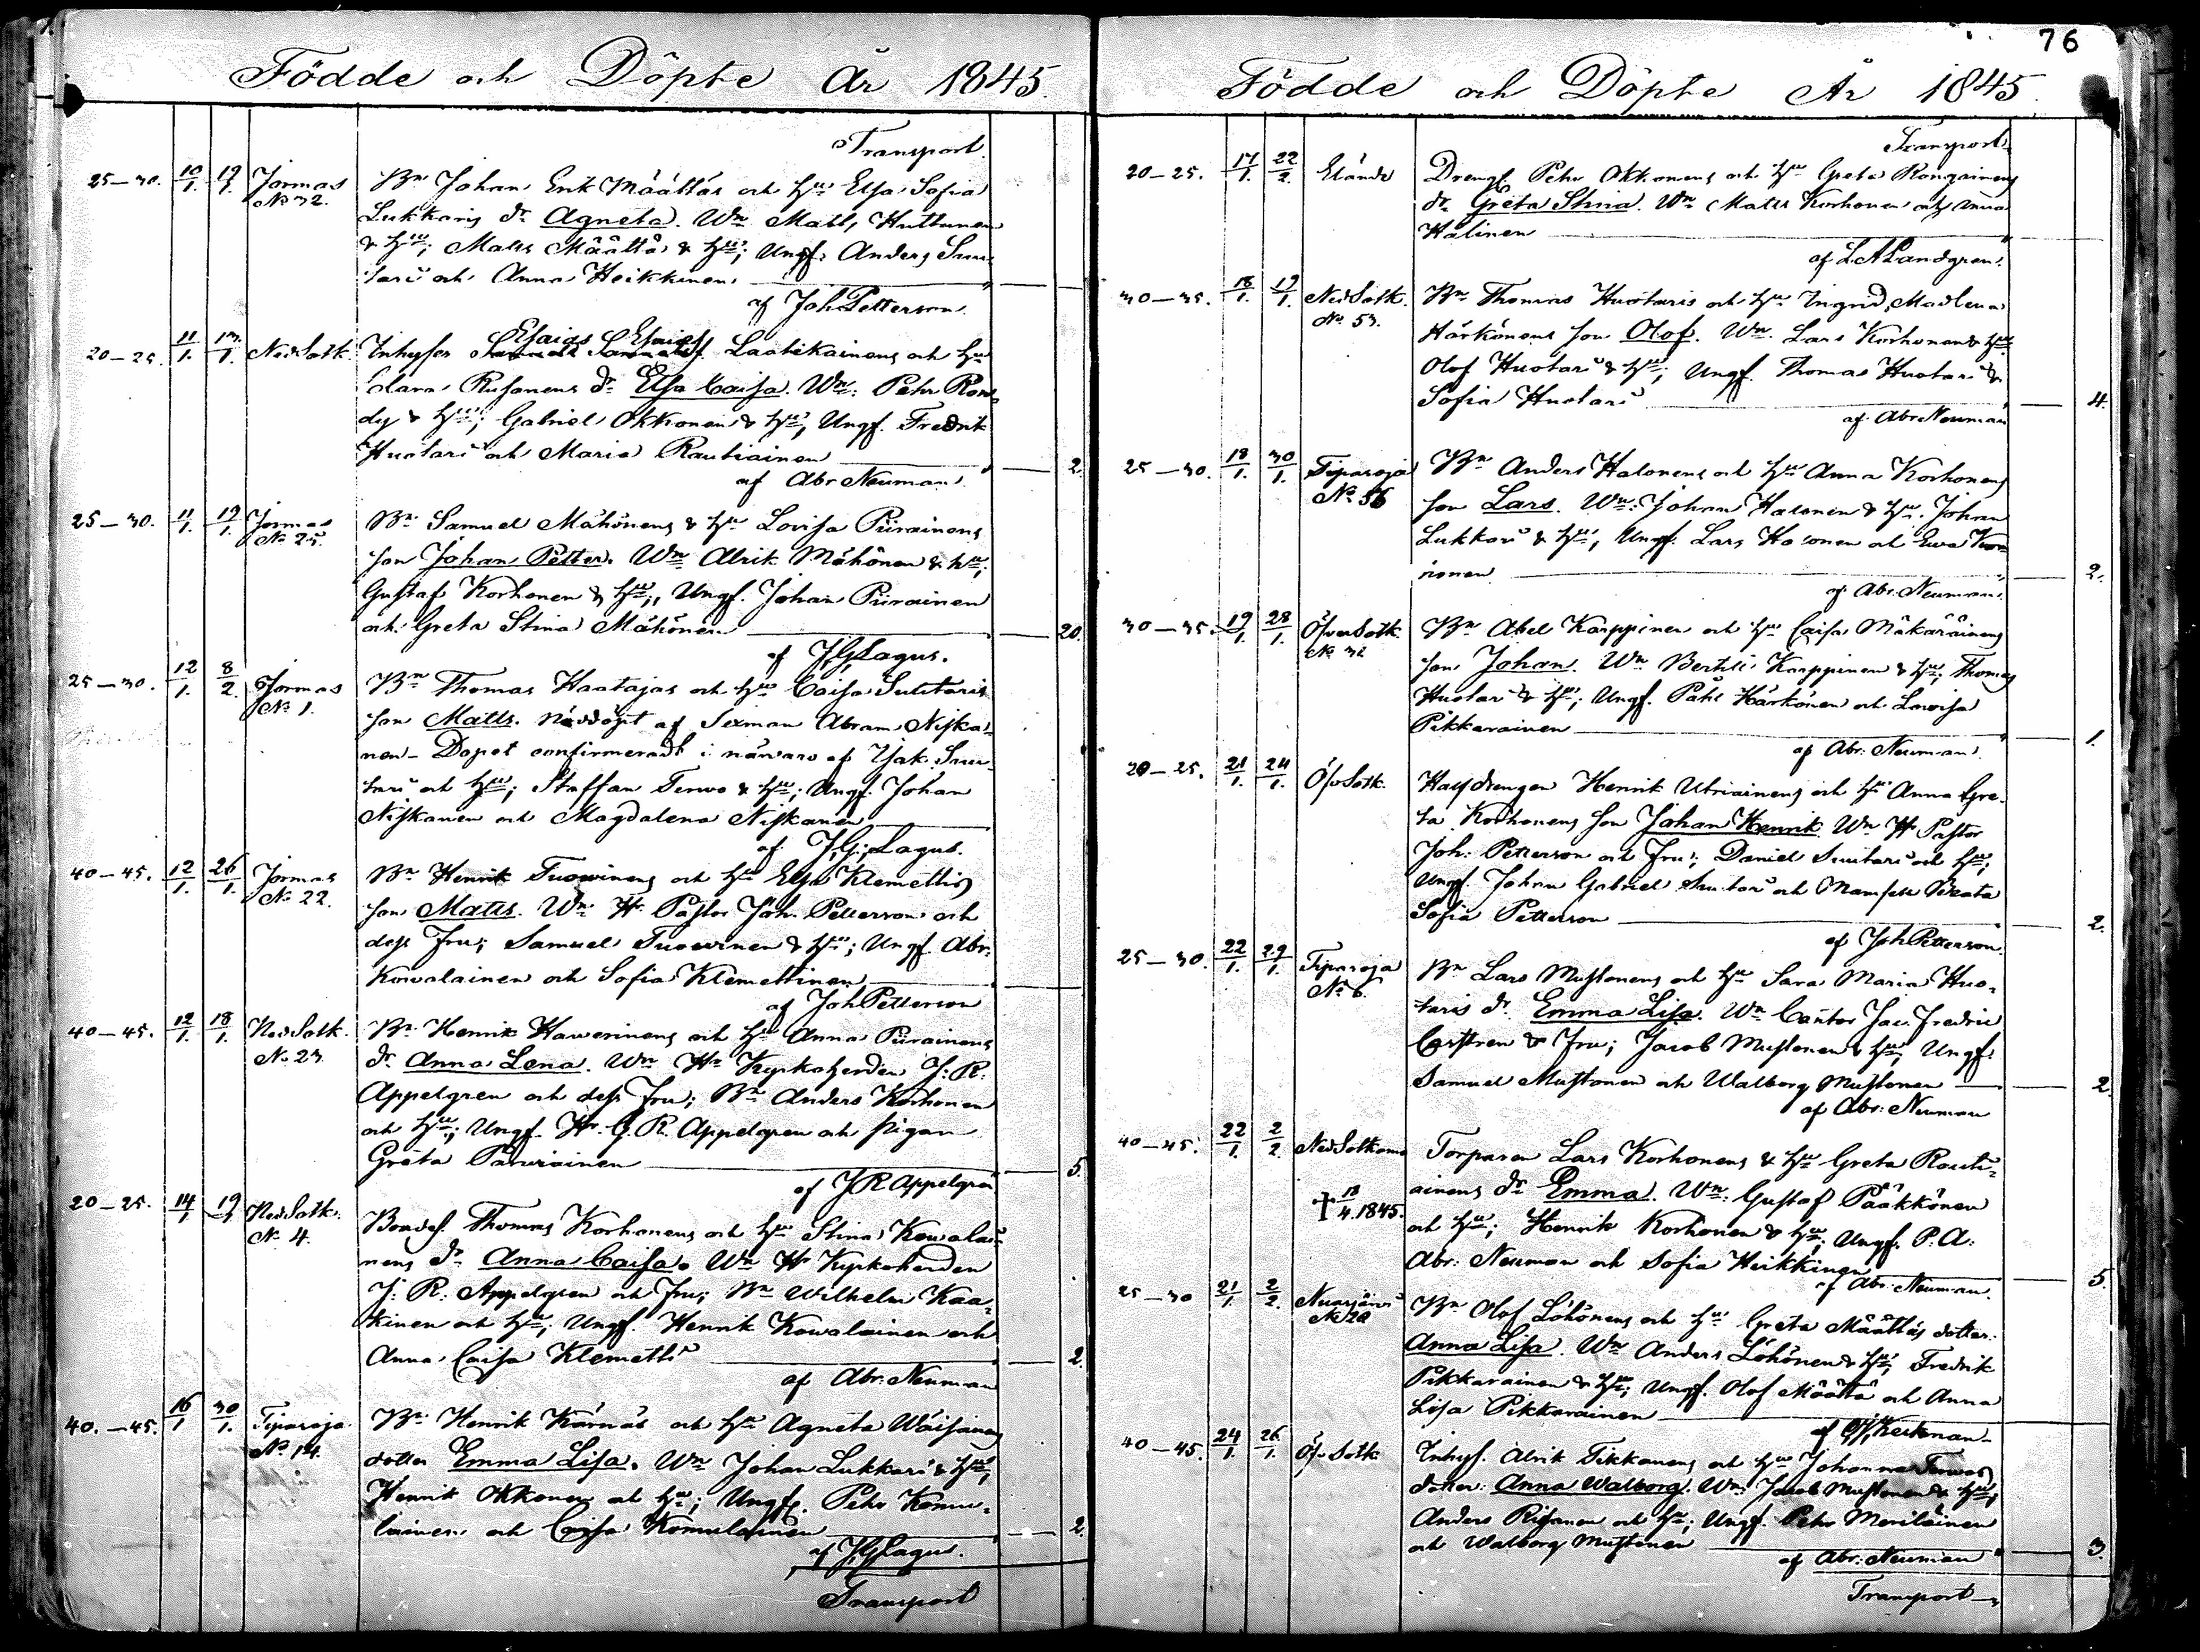 Födde och Döpte År 1845.
Transport.
25–30. 10/1. 19/1. Jormas Bn Johan Erik Määttäs och hu Elsa Sofia
No 32. Lukkaris dr Agneta. Wn Matts Huttunen
& hu; Matts Määttä & hu; Ungf. Anders Suu-
tari och Anna Heikkinen.
af Joh. Petterson.
20–25. 11/1. 13/1. Ned Sotk. Inhyses Esaias Esaiasf Laatikainens och hu
Clara Rusanens dr Elsa Caisa. Wn: Pehr Ron-
dy & hu; Gabriel Okkonen & hu; Ungf. Fredrik
Huotari och Maria Rautiainen 2.
af Abr Neuman.
25–30. 11/1. 19/1. Jormas Bn Samuel Mähönens & hu Lovisa Piirainens
No 25. son Johan Petter. Wn Alrik Mähönen & hu;
Gustaf Korhonen & hu; Ungf. Johan Piirainen
och Greta Stina Mähönen 20.
af J. G. Lagus.
25–30. 12/1. 8/2. Jormas Bn Thomas Haatajas och hu Caisa Suutaris
No 1. son Matts. Nöddöpt af Sexman Abram Niska-
nen – Dopet confirmeradt i närvaro af Isak Suu-
tari och hu; Staffan Terwo & hu; Ungf. Johan
Niskanen och Magdalena Niskanen
af J. G. Lagus.
40–45. 12/1. 26/1. Jormas Bn Henrik Tuovinens och hu Elsa Klemettis
No 22. son Matts. Wn Hr Pastor Joh. Petterson och
dess Fru; Samuel Tuovinen & hu; Ungf. Abr.
Kovalainen och Sofia Klemettinen
af Joh Petterson
40–45. 12/1. 18/1. Ned Sotk. Bn Henrik Haverinens och hu Anna Piirainens
No 23 dr Anna Lena. Wn Hr Kyrkoherden J. R.
Appelgren och dess Fru; Bn Anders Korhonen
och hu; Ungf. Hr G. R. Appelgren och pigan
Greta Parviainen 5.
af J R Appelgren
20–25. 14/1 19/1 Ned Sotk. Bondes. Thomas Korhonens och hu Stina Kovalai-
No 4. nens dr Anna Caisa. Wn Hr Kyrkoherden
J. R. Appelgren och Fru; Bn Wilhelm Kaa-
kinen och hu; Ungf. Henrik Kowalainen och
Anna Caisa Klemetti 2.
af Abr. Neuman
40.–45. 16/1 30/1. Tiparoja Bn Henrik Kärnäs och hu Agneta Wäisänens
No 14. dotter Emma Lisa. Wn Johan Lukkari & hu;
Henrik Okkonen och hu; Ungf. Pehr Komu-
lainen och Caisa Komulainen 2.
af J. G. Lagus.
Transport
76
Födde och Döpte År 1845
Transport.
20–25. 17/1. 22/2. Elände Drengf Pehr Okkonens och hu Greta Rongainens
dr Greta Stina. Wn Matts Korhonen och Anna
Halinen
af L. A. Landgren.
30–35. 18/1. 19/1. Ned Sotk. Bn Thomas Huotaris och hu Ingrid Madlena
No 53. Härkönens son Olof. Wn. Lars Korhonen & hu;
Olof Huotari & hu; Ungf. Thomas Huotari &
Sofia Huotari 4.
af Abr Neuman
25–30. 18/1. 30/1. Tiparoja Bn Anders Halonens och hu Anna Korhonens
No 56 son Lars. Wn: Johan Halonen & hu. Johan
Lukkari & hu, Ungf. Lars Halonen och Ewa Kor-
honen 2.
af Abr. Neuman.
30–35. 19/1. 28/1. Öfver Sotk. Bn Abel Karppinen och hu Caisa Mäkäräinens
No 32 son Johan. Wn Bertil Karppinen & hu; Thomas
Huotari & hu; Ungf. Påhl Härkönen och Lovisa
Pikkarainen 1.
af Abr. Neuman.
20–25. 21/1. 24/1. Öfv Sotk. Halfdrengen Henrik Utriainens och hu Anna Gre-
ta Korhonens son Johan Henrik. Wn Hr Pastor
Joh. Petterson och Fru; Daniel Suutari och hu;
Ungf. Johan Gabriel Suutari och Mamsell Beata
Sofia Petterson 2.
af Joh Petterson.
25–30. 22/1. 29/1. Tiparoja Bn Lars Mustonens och hu Sara Maria Huo-
No 6. taris dr Emma Lisa. Wn Cantor Jac. Fredric
Castren & Fru; Jacob Mustonen & hu; Ungf.
Samuel Mustonen och Walborg Mustonen 2
af Abr: Neuman
40–45. 22/1. 2/2. Ned Sotkamo Torparen Lars Korhonens & hu Greta Rauti-
ainens dr Emma. Wn: Gustaf Pääkkönen
† 18/4. 1845. och hu; Henrik Korhonen & hu; Ungf. P. A.
Abr. Neuman och Sofia Heikkinen 5.
af Abr. Neuman.
25–30 21/1. 2/2. Nuasjärvi Bn Olof Löhönens och hu Greta Määttäs dotter
No 20 Anna Lisa. Wn Anders Löhönen & hu; Fredrik
Pikkarainen & hu; Ungf. Olof Määttä och Anna
Lisa Pikkarainen
40–45 24/1. 26/1. Öfv Sotk Inhys. Alrik Tikkanens och hu Johanna Terwos
dotter. Anna Walborg. Wn: Jacob Mustonen & hu;
Anders Risanen och hu; Ungf. Pehr Meriläinen
och Walborg Mustonen 3.
af Abr. Neuman
Transport